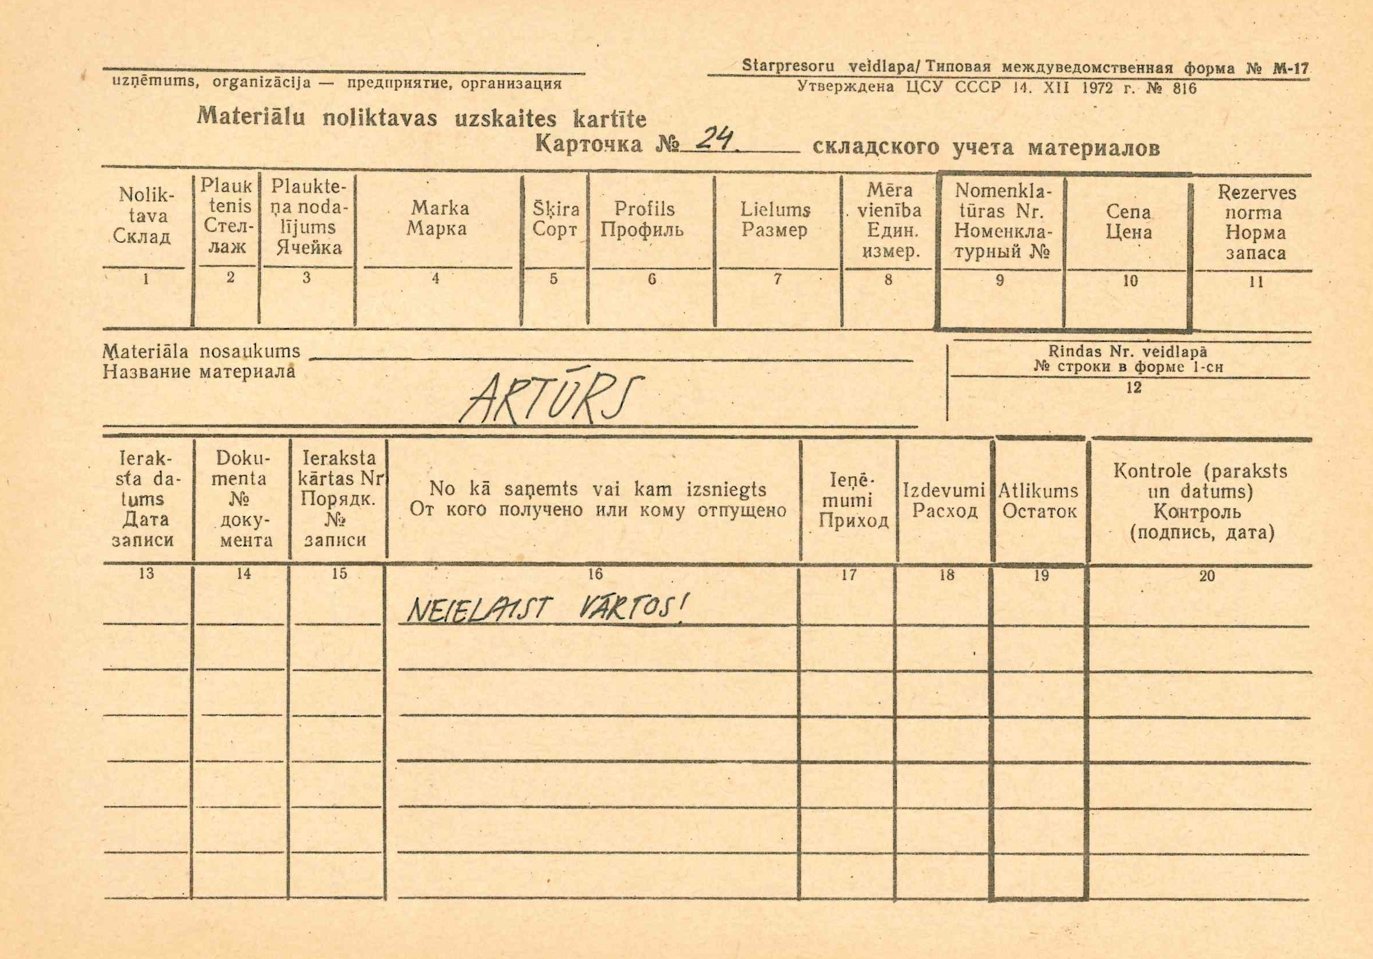 Starpresoru veidlapa/Типовая междуведомственная форма № М-17
uzņēmums, organizācija — предприятие, организация
Утверждена ЦСУ СССР 14. XII 1972 г. № 816
Materiālu noliktavas uzskaites kartīte
Карточка № 24. складского учета материалов
Nolik-
tava
Склад
Plauk
tenis
Стел-
лаж
Plaukte-
ņa noda-
lījums
Ячейка
Marka
Марка
Šķira
Сорт
Profils
Профиль
Lielums
Размер
Mēra
vienība
Един.
измер.
Nomenkla-
tūras Nr.
Номенкла-
турный №
Cena
Цена
Rezerves
norma
Норма
запаса
1 2 3 4 5 6 7 8 9 10 11
Materiāla nosaukums
Название материала
ARTŪRS
Rindas Nr. veidlapā
№ строки в форме 1-сн
12
Ierak-
sta da-
tums
Дата
записи
Doku-
menta
№
доку-
мента
Ieraksta
kārtas Nr
Порядк.
№
записи
No kā saņemts vai kam izsniegts
От кого получено или кому отпущено
Ieņē-
mumi
Приход
Izdevumi
Расход
Atlikums
Остаток
Kontrole (paraksts
un datums)
Контроль
(подпись, дата)
13 14 15 16 17 18 19 20
NEIELAIST VĀRTOS!